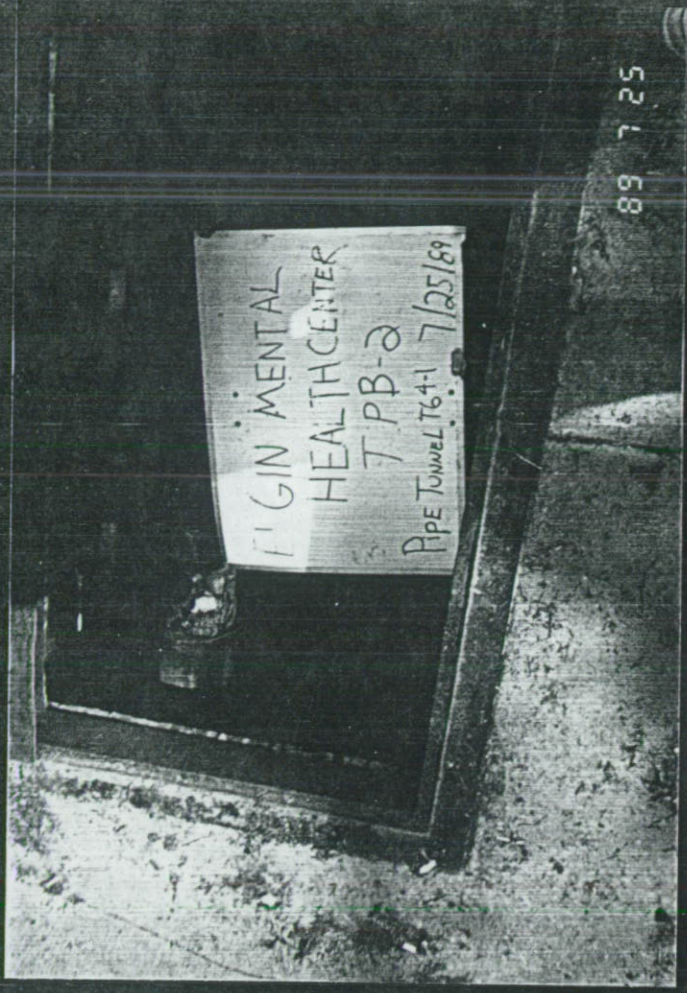 ELGIN MENTAL
HEALTH CENTER
TPB-2
PIPE TUNNEL T64-1 7/25/89
89 7 25